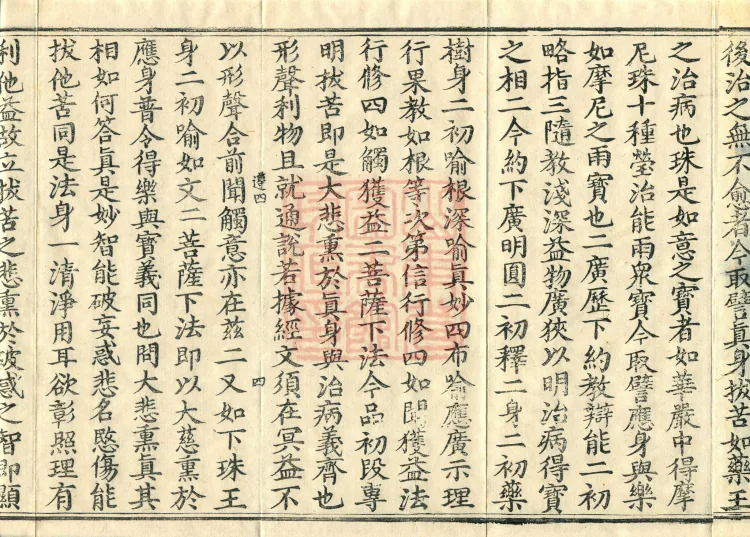 後治之無不愈者今取譬眞身拔苦如藥王
之治病也珠是如意之寶者如華嚴中得摩
尼珠十種瑩治能雨衆寶今取譬應身與樂
如摩尼之雨寶也二廣歷下約教辯能二初
略指三隨教淺深益物廣狹以明治病得寶
之相二今約下廣明圓二初釋二身二初藥
樹身二初喻根深喻眞妙四布喻應廣示理
行果教如根等次第信行修四如聞獲益法
行修四如觸獲益二菩薩下法今品初段專
明拔苦即是大悲熏於眞身與治病義齊也
形聲利物且就通說若據經文須在冥益不
遵四 四
以形聲合前聞觸意亦在茲二又如下珠王
身二初喻如文二菩薩下法即以大慈熏於
應身普令得樂與寶義同也問大悲熏真其
相如何答眞是妙智能破妄惑悲名愍傷能
拔他苦同是法身一清淨用耳欲彰照理有
利他益故立拔苦之悲熏於破惑之智即顯